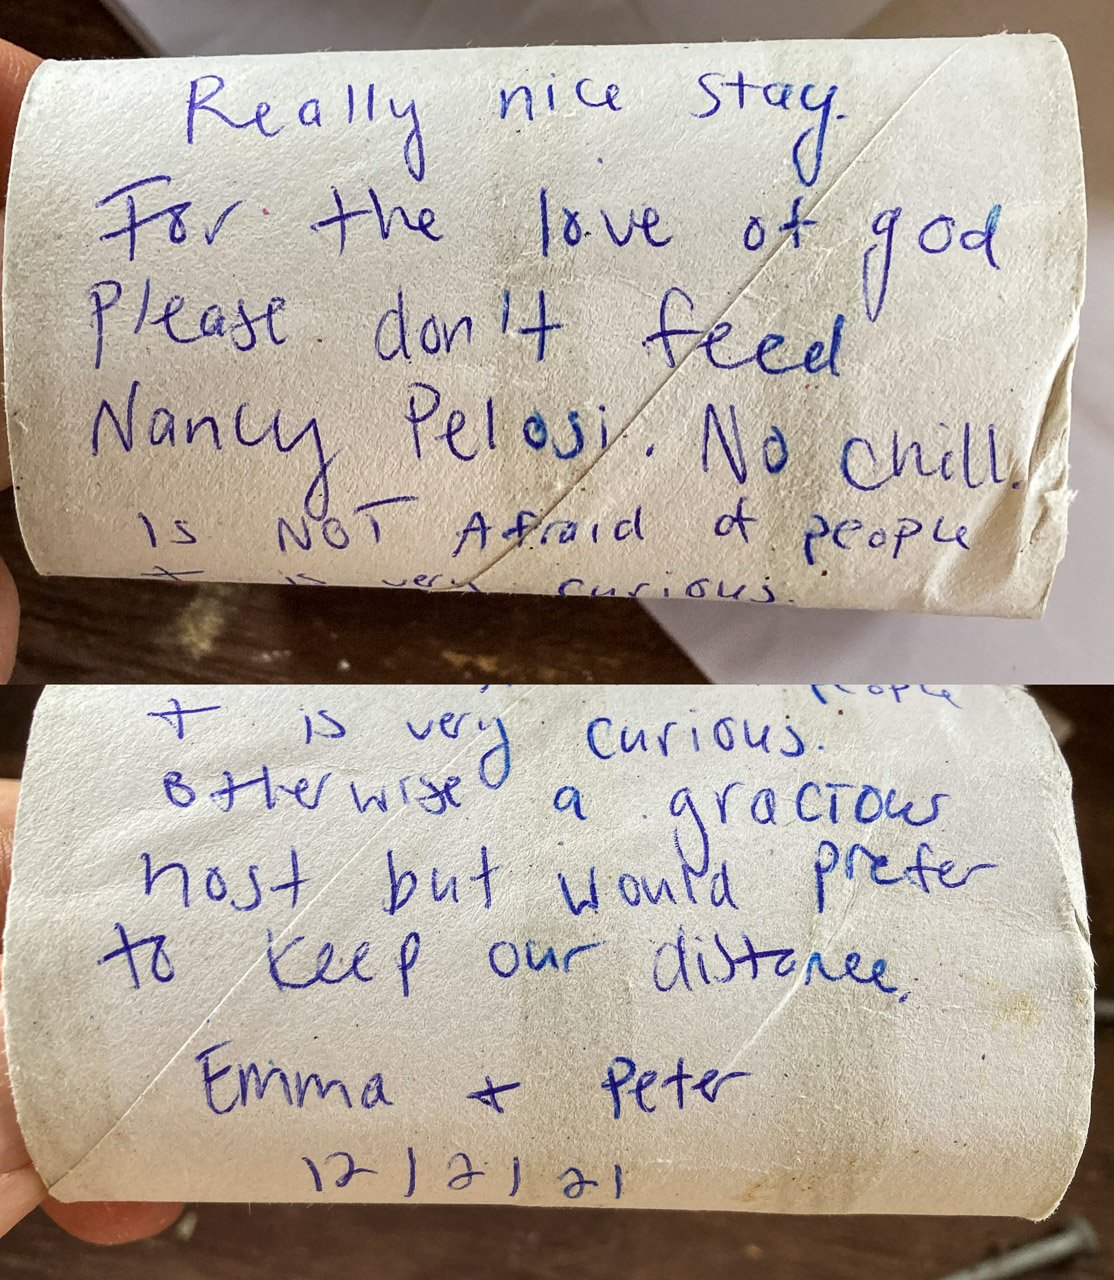 Really nice stay.
For the love of god
please don't feed
Nancy Pelosi. No chill.
is NOT Afraid of people
+ is very curious.
people
+ is very curious.
otherwise a gracious
host but would prefer
to keep our distance.
Emma + Peter
12/2/21